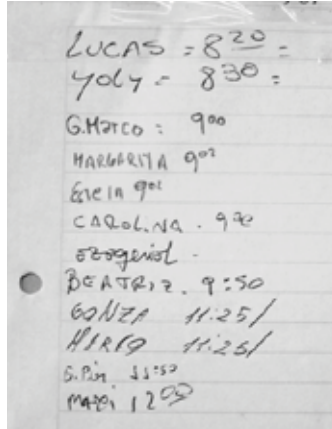 LUCAS = 8 20 =
YOLY = 8 30 =
G.MARCO = 9 00
MARGARITA 9 02
9 02
CAROLINA . 9
BEATRIZ . 9:50
GONZA 11:25/
MARIO 11:25/
11:50
12 00